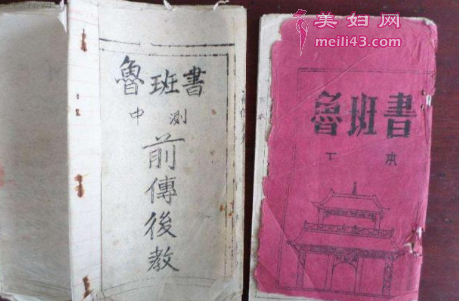 魯班書
中測
前傳後教
美妇网
meili43.com
魯班書
下本